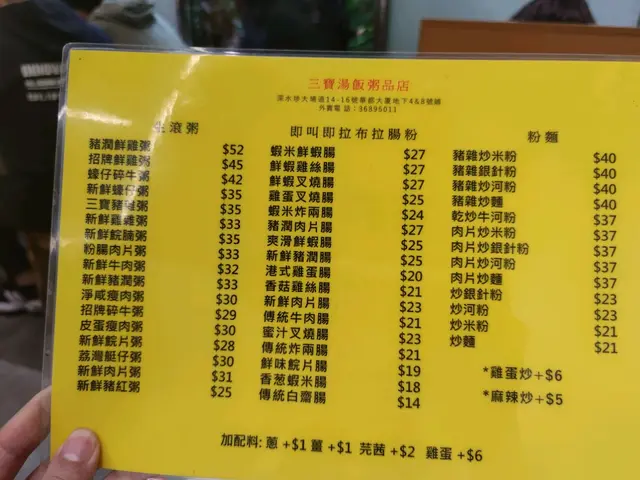 三寶湯飯粥品店
深水埗大埔道14-16號華都大廈地下4&8號舖
外賣電話:36895011
生滾粥
豬潤鮮雞粥 $52
招牌鮮雞粥 $45
蠔仔碎牛粥 $42
新鮮蠔仔粥 $35
三寶豬雜粥 $35
新鮮雞雜粥 $33
新鮮鯇腩粥 $35
粉腸肉片粥 $33
新鮮牛肉粥 $32
新鮮豬潤粥 $33
淨咸瘦肉粥 $30
招牌碎牛粥 $29
皮蛋瘦肉粥 $30
新鮮鯇片粥 $28
荔灣艇仔粥 $30
新鮮肉片粥 $31
新鮮豬紅粥 $25
即叫即拉布拉腸粉
蝦米鮮蝦腸 $27
鮮蝦雞絲腸 $27
鮮蝦叉燒腸 $27
雞蛋叉燒腸 $25
蝦米炸兩腸 $24
豬潤肉片腸 $27
爽滑鮮蝦腸 $25
新鮮豬潤腸 $25
港式雞蛋腸 $20
香菇雞絲腸 $21
新鮮肉片腸 $21
傳統牛肉腸 $21
蜜汁叉燒腸 $21
傳統炸兩腸 $21
鮮味鯇片腸 $19
香葱蝦米腸 $18
傳統白齋腸 $14
粉麵
豬雜炒米粉 $40
豬雜銀針粉 $40
豬雜炒河粉 $40
豬雜炒麵 $40
乾炒牛河粉 $37
肉片炒米粉 $37
肉片炒銀針粉 $37
肉片炒河粉 $37
肉片炒麵 $37
炒銀針粉 $23
炒河粉 $23
炒米粉 $23
炒麵 $21
*雞蛋炒+$6
*麻辣炒+$5
加配料: 蔥 +$1 薑 +$1 芫茜 +$2 雞蛋 +$6